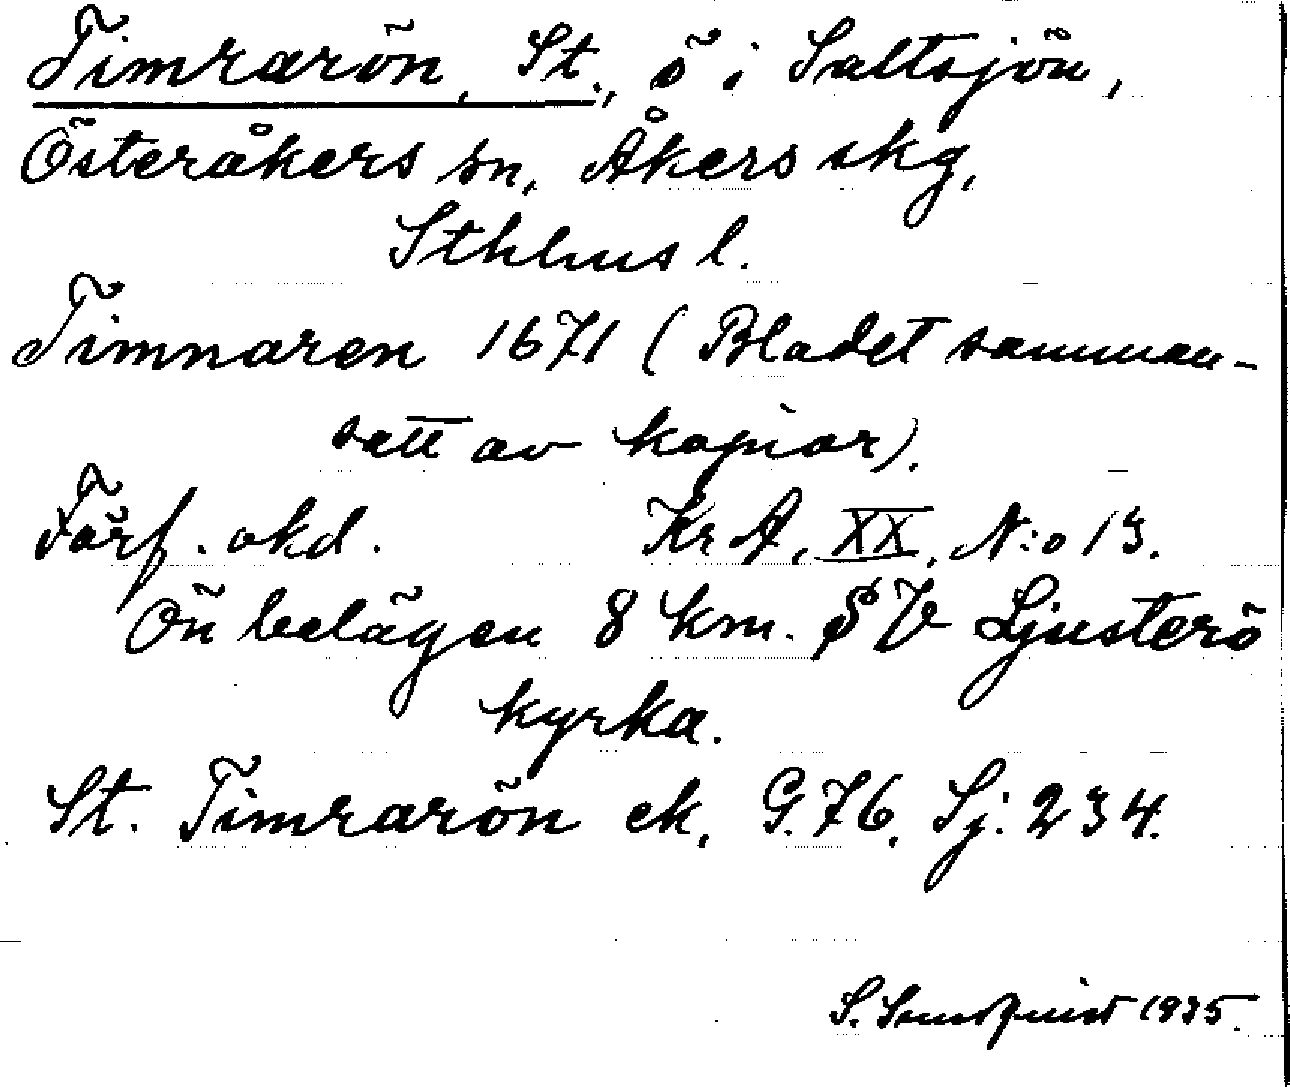 Timrarön, St., ö i Saltsjön,
Österåkers sn, Åkers skg,
Sthlms l.
Timnaren 1671 (Bladet samman-
satt av kopior).
Förf. okd. KrA, XX, N:o 13.
Ön belägen 8 km. SV Ljusterö
kyrka.
St. Timrarön ek, G. 76, Sj: 234.
S. 1935.